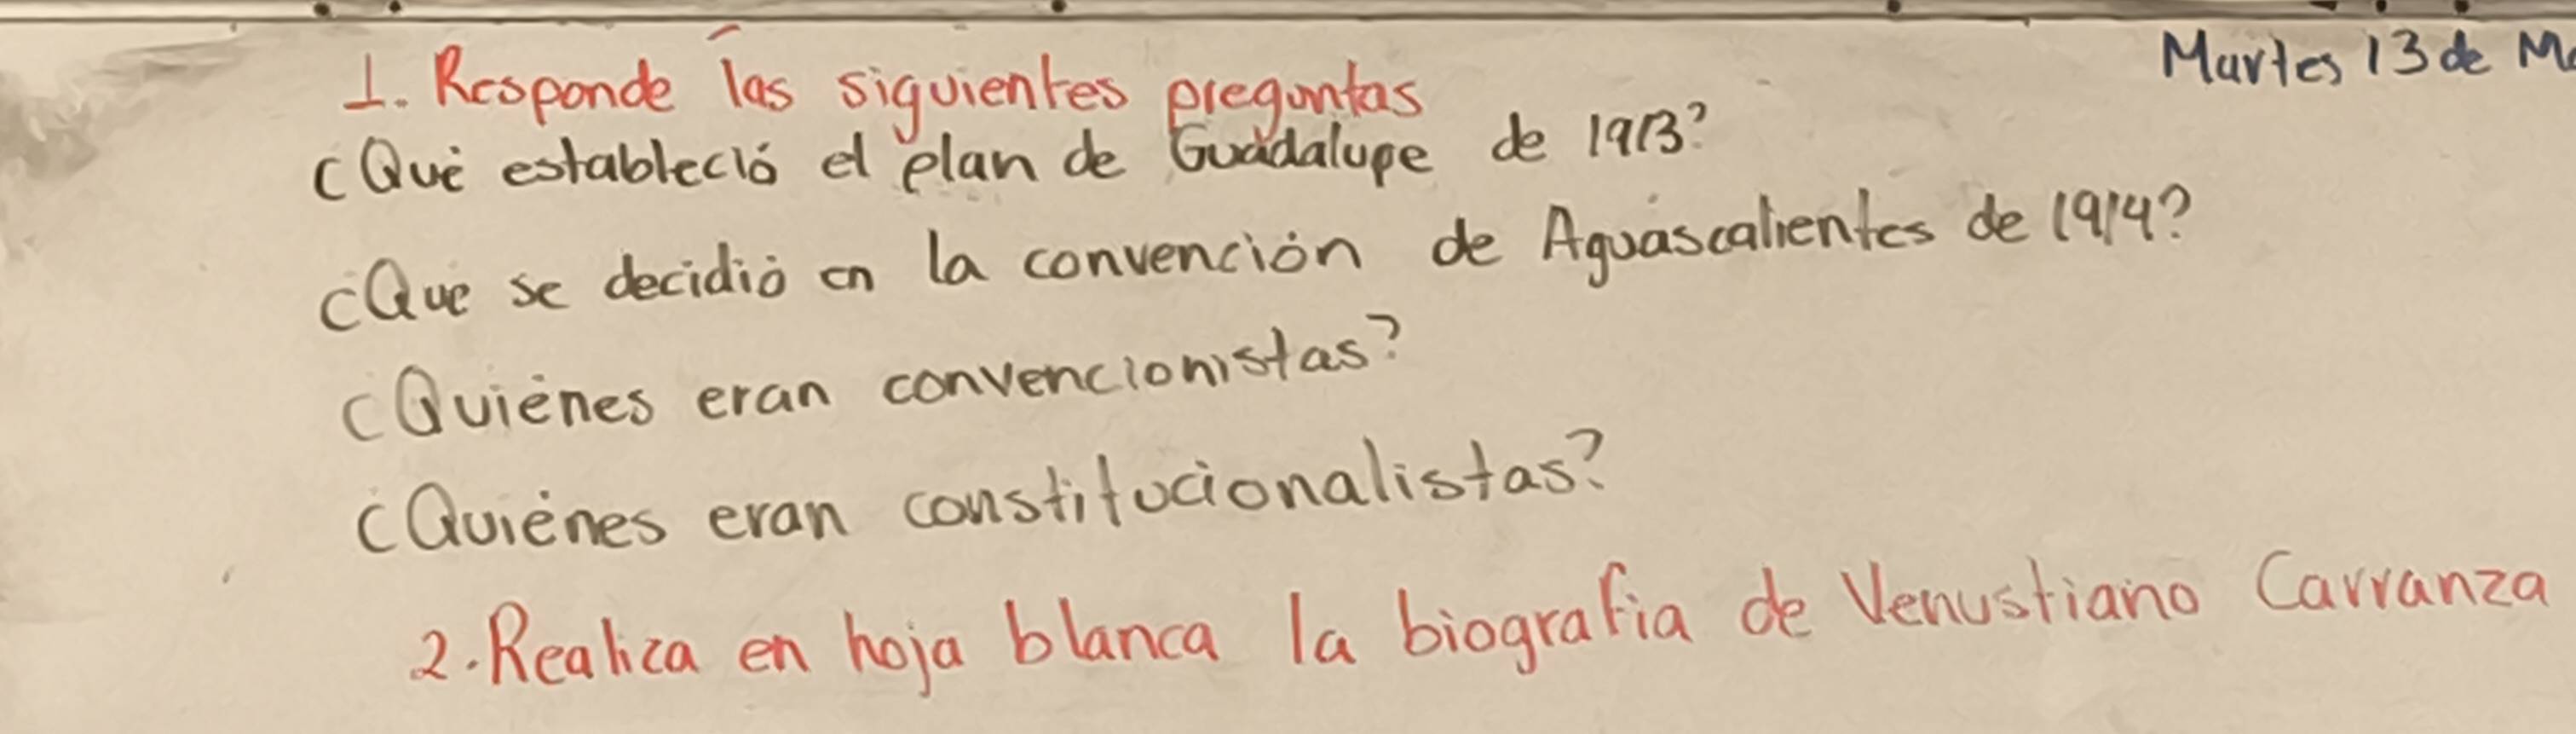 Martes 13 de
1. Responde las siguientes preguntas
¿Qué estableció el plan de Guadalupe de 1913?
¿Que se decidió en la convención de Aguascalientes de 1914?
¿Quiénes eran convencionistas?
¿Quiénes eran constitucionalistas?
2. Realiza en hoja blanca la biografia de Venustiano Carranza